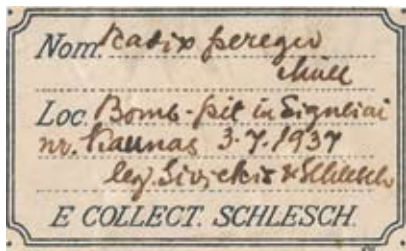 Nom. Radix peregra
Müll
Loc. Bomb-pit in Signliai
nr. Kaunas 3.7.1937
leg. Sivickis & Schlesch
E COLLECT. SCHLESCH.